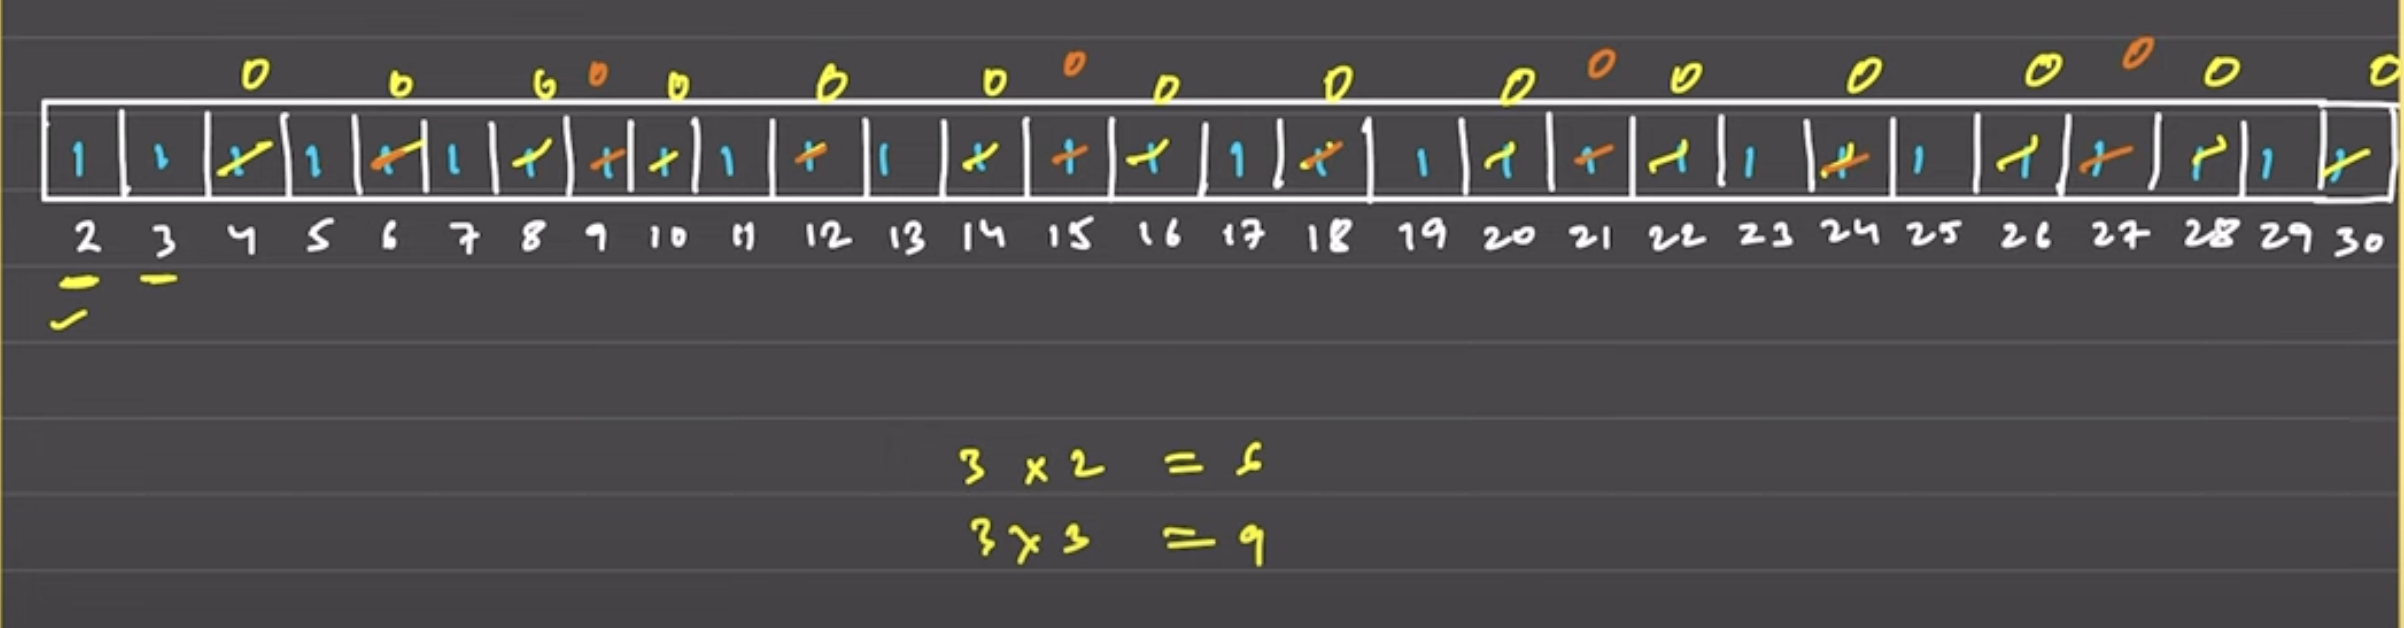 0 0 0 0 0 0 0 0 0 0 0 0 0 0 0 0 0 0
1 1 1 1 1 1 1 1 1 1 1 1 1 1 1 1 1 1 1 1 1 1 1 1 1 1 1 1 1
2 3 4 5 6 7 8 9 10 11 12 13 14 15 16 17 18 19 20 21 22 23 24 25 26 27 28 29 30
3 x 2 = 6
3 x 3 = 9